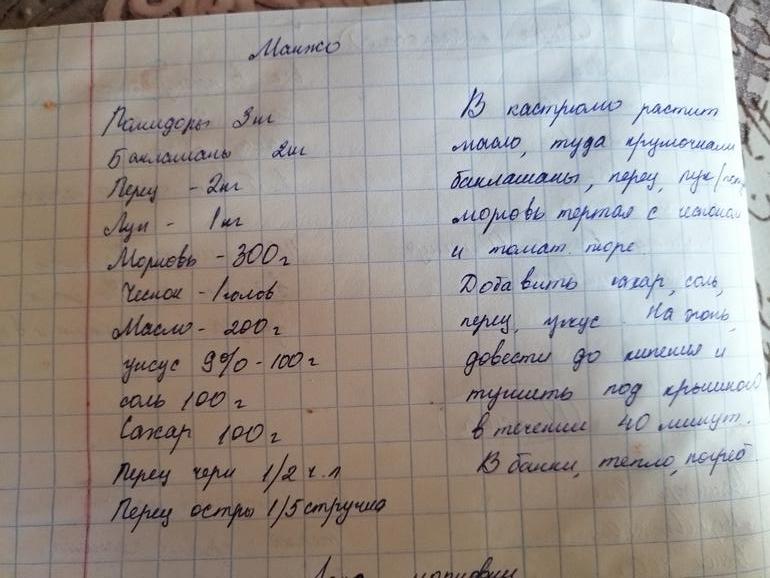 Манжо
Помидоры 3 кг
Баклашаны 2 кг
Перец - 2 кг
Лук - 1 кг
Морковь - 300 г
Чеснок - 1 голов
Масло - 200 г
уксус 9% - 100 г
соль 100 г
Сахар 100 г
Перец черн 1/2 ч.л
Перец остры 1/5 стручка
В кастрюлю растит
масло, туда кружочками
баклашаны, перец, лук
морковь тертая с чесноком
и томат. пюре.
Добавить сахар, соль,
перец, уксус. На огонь,
довести до кипения и
тушить под крышкой
в течении 40 минут.
В банки, тепло, погреб.